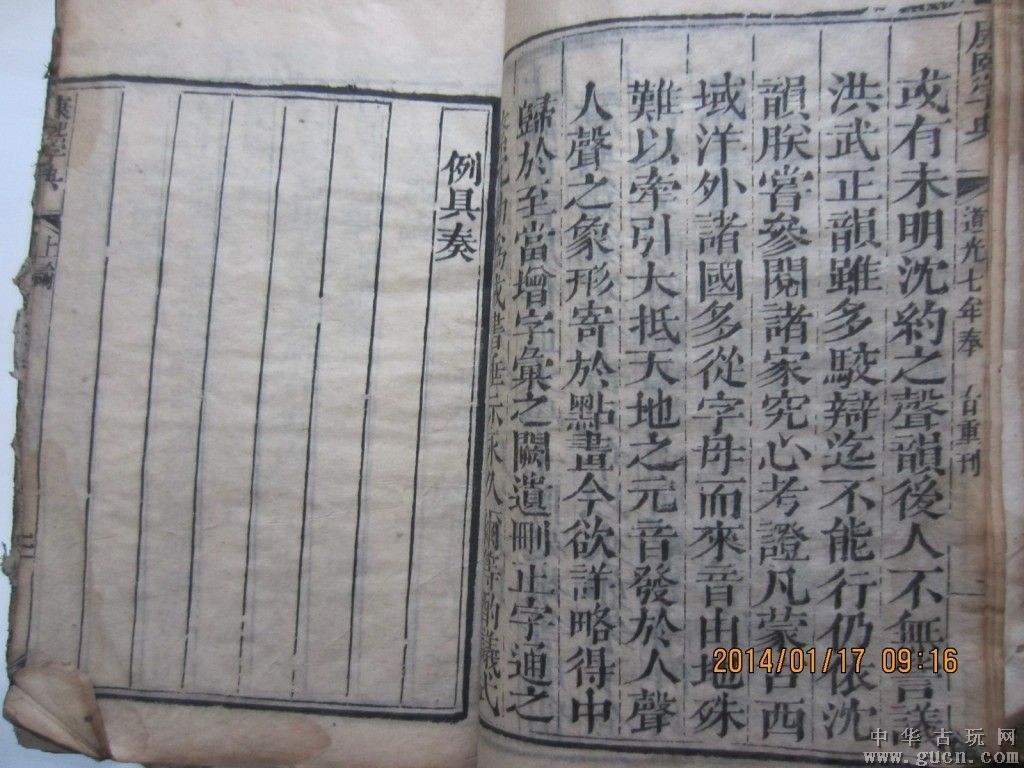 康熙字典 道光七年奉 旨重刊
或有未明沈約之聲韻後人不無言議
洪武正韻雖多駁辯迄不能行仍依沈
韻朕嘗參閱諸家究心考證凡蒙古西
域洋外諸國多從字母而來音由地殊
難以牽引大抵天地之元音發於人聲
人聲之象形寄於點畫今欲詳略得中
歸於至當增字彙之闕遺刪正字通之
爾等酌議式
例具奏
康熙字典 上諭 二
2014/01/17 09:16
中华古玩网
www.gucn.com